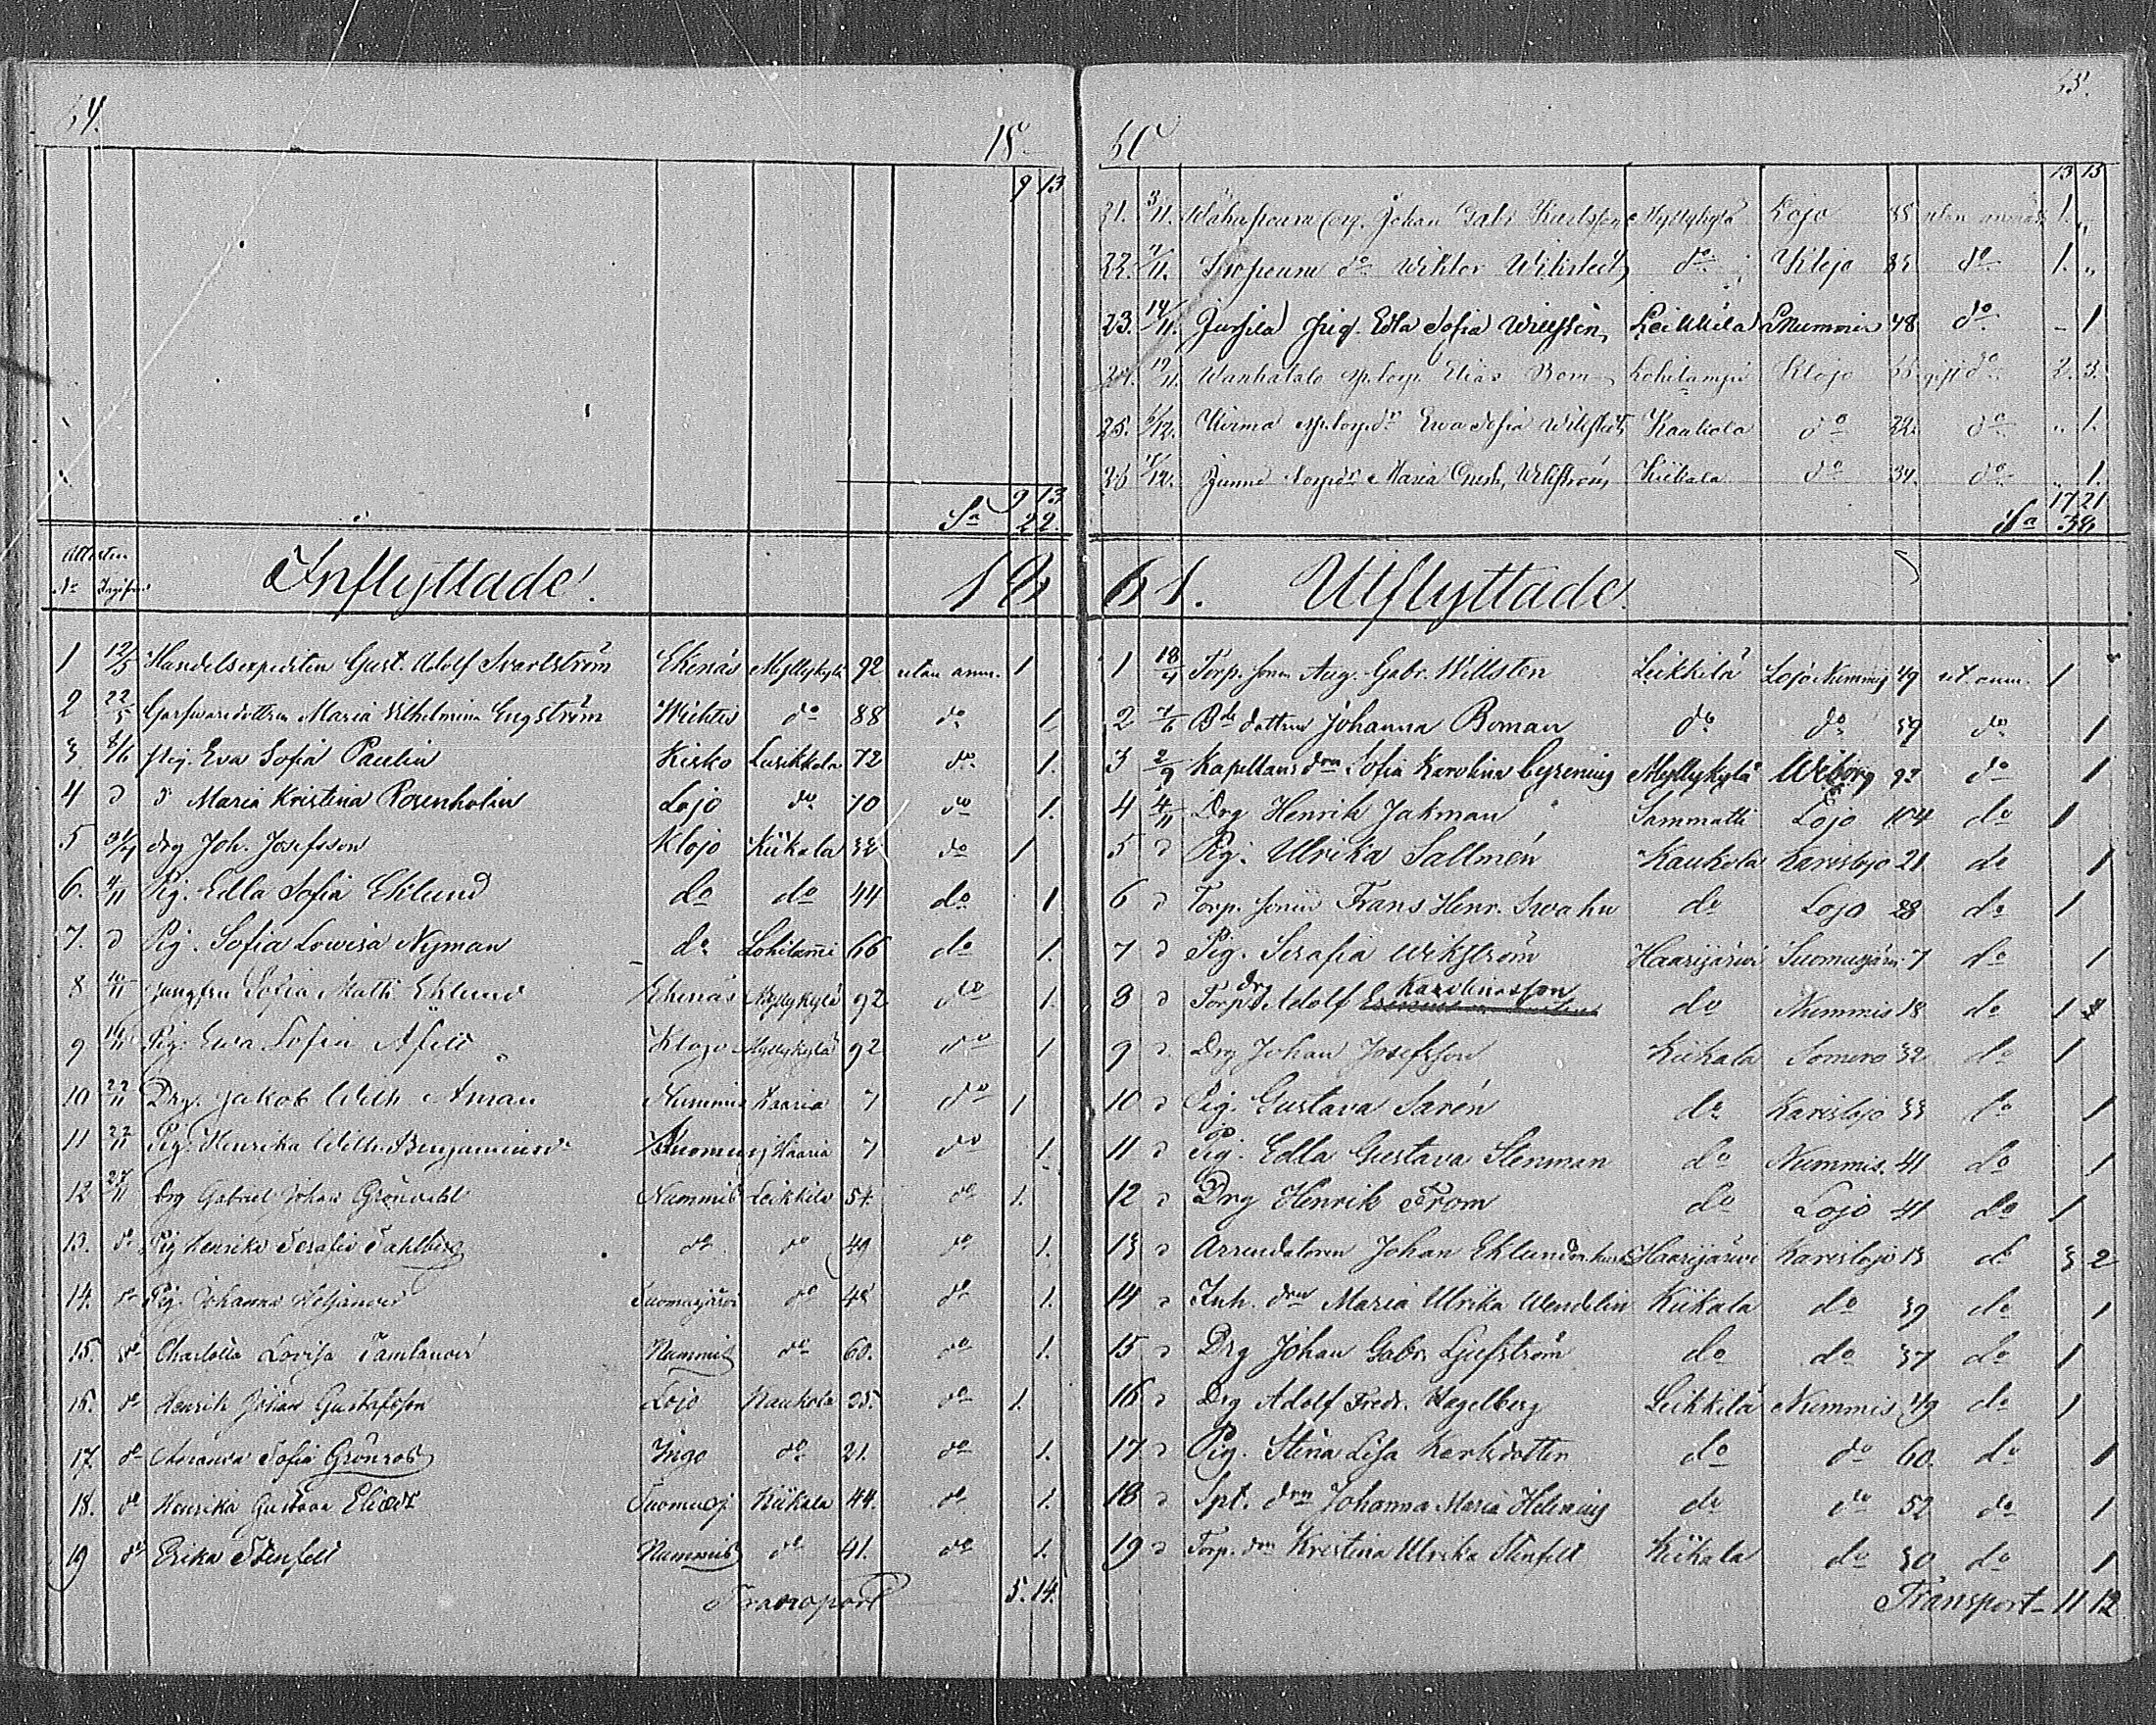 64.
18
9 13
9 13
Sa 22.
Attesten
No Dagifne
Inflyttade. 18
1 12/5 Handelsexpediten Gust. Adolf Svartström Ekenäs Myllykylä 92 utan anm. 1
2 22/5 Maria Vilhelmina Engström Wichtis do 88 do 1
3 8/6 Pig. Eva Sofia Paulin Kisko Leikkola 72 do 1.
4 d d Maria Kristina Rosenholm Lojo do 70 do 1.
5 31/7 drg Joh. Josefsson Klojo Kiikala 32 do 1
6. 4/11 Pig. Edla Sofia Eklund do do 44 do 1
7. d Pig. Sofia Lowisa Nyman do Lohilami 66 do 1.
8 10/11 Jungfru Sofia Math. Eklund Ekenäs Myllykylä 92 do 1.
9 14/11 Pig. Ewa Sofia Åfelt Klojo Myllykylä 92 do 1
10 22/11 Drg. Jakob Wilh. Åman Nummis Haaria 7 do 1
11 22/11 Pig. Henrika Wilh. Benjaminsdr Suomusj Haaria 7 do 1.
12 27/11 Drg Gabriel Johan Grönvahl Nummis Leikkilä 54. do 1.
13. do Pig Henrika Serafia Dahlberg do do 49 do 1.
14. do Pig. Johanna Suomusjärvi do 48 do 1.
15. do Charlotta Lovisa Nummis do 60. do 1.
16. do Henrik Johan Gustafsson Lojo Kaukola 25. do 1.
17. do Amanda Sofia Grönroos Ingo do 21. do 1.
18. do Henrika Gustava Eliædr Suomusj Kiikala 44. do 1.
19 do Erika Stenfelt Nummis do 41. do 1.
Transport 5. 14.
65.
60
13 13
21. 3/11. Johan Gabr Karlsson Myllykylä Lojo 88 utan anmärk 1. „
22. 7/11. do Wiktor Wikstedt do Klojo 85 do 1. „
23. 14/11. Jussila pig. Edla Sofia Willstén Leikkilä LNummis 48 do – 1
24. 19/11. Wanhatalo sp.torp. Elias Bom Lohilampi Klojo 66 gift do 2. 3.
25. 6/12. sp.torp.dr Ewa Sofia Wikstedt Kaukola do 22. do „ 1.
26 7/12. Junno torpdr Maria Wikström Kiikala do 34. do „ 1.
17 21
Sa 38
61. Utflyttade.
1 18/4 Torp. sonen Aug. Gabr. Willsten Leikkilä Lojo Nummis 49 ut. anm. 1
2 7/6 Bde dottren Johanna Boman do do 59 do 1
3 2/9 Kapellans drn Sofia Karolina Cyrenius Myllykylä Wiborg 92 do 1
4 4/11 Drg Henrik Jakman Sammatti Lojo 104 do 1
5 d Pig. Ulrika Sallmén Kaukola Karislojo 21 do 1
6 d Torp. sonen Frans Henr. Swahn do Lojo 28 do 1
7 d Pig. Serafia Wikström Haarijärvi Suomusjärvi 7 do 1
8 d Torp dr Adolf Karolinasson do Nummis 18 do 1
9 d. Drg Johan Josefsson Kiikala Somero 32 do 1
10 d Pig. Gustava Sarén do Karislojo 33 do 1
11 d Pig. Edla Gustava Stenman do Nummis. 41 do 1
12 d Drg Henrik From do Lojo 41 do 1
13 d Arrendatoren Johan Eklund Haarijärvi Karislojo 13 do 3 2
14 d Inh. drn Maria Ulrika Wendelin Kiikala do 39 do 1
15 d Drg Johan Gabr. Ljefström do do 37 do 1
16 d Drg Adolf Fredr. Hagelberg Leikkilä Nummis 49 do 1
17 d Pig. Stina Lisa Karlsdotter do do 60. do 1
18 d Spt. drn Johanna Maria Helenius do do 52 do 1
19 d Torp. drn Kristina Ulrika Stenfelt Kiikala do 30 do 1
Transport 11 12